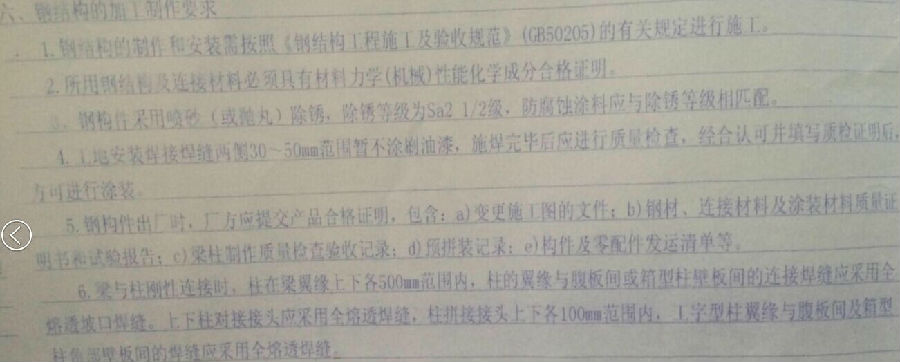 六、钢结构的加工制作要求
1.钢结构的制作和安装需按照《钢结构工程施工及验收规范》(GB50205)的有关规定进行施工。
2.所用钢结构及连接材料必须具有材料力学(机械)性能化学成分合格证明。
3.钢构件采用喷砂(或抛丸)除锈，除锈等级为Sa2 1/2级，防腐蚀涂料应与除锈等级相匹配。
4.工地安装焊接焊缝两侧30～50mm范围暂不涂刷油漆，施焊完毕后应进行质量检查，经合认可并填写质检证明后,
方可进行涂装。
5.钢构件出厂时，厂方应提交产品合格证明，包含：a)变更施工图的文件；b)钢材、连接材料及涂装材料质量证
明书和试验报告；c)梁柱制作质量检查验收记录；d)预拼装记录；e)构件及零配件发运清单等。
6.梁与柱刚性连接时，柱在梁翼缘上下各500mm范围内，柱的翼缘与腹板间或箱型柱壁板间的连接焊缝应采用全
熔透坡口焊缝。上下柱对接接头应采用全熔透焊缝，柱拼接接头上下各100mm范围内，工字型柱翼缘与腹板间及箱型
柱角部壁板间的焊缝应采用全熔透焊缝。